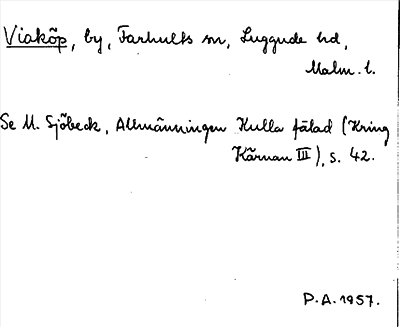 Viaköp, by, Farhults sn, Luggude hd,
Malm. l.
Se M. Sjöbeck, Allmänningen Kulla fälad (Kring
Kärnan III), s. 42.
P.A. 1957.